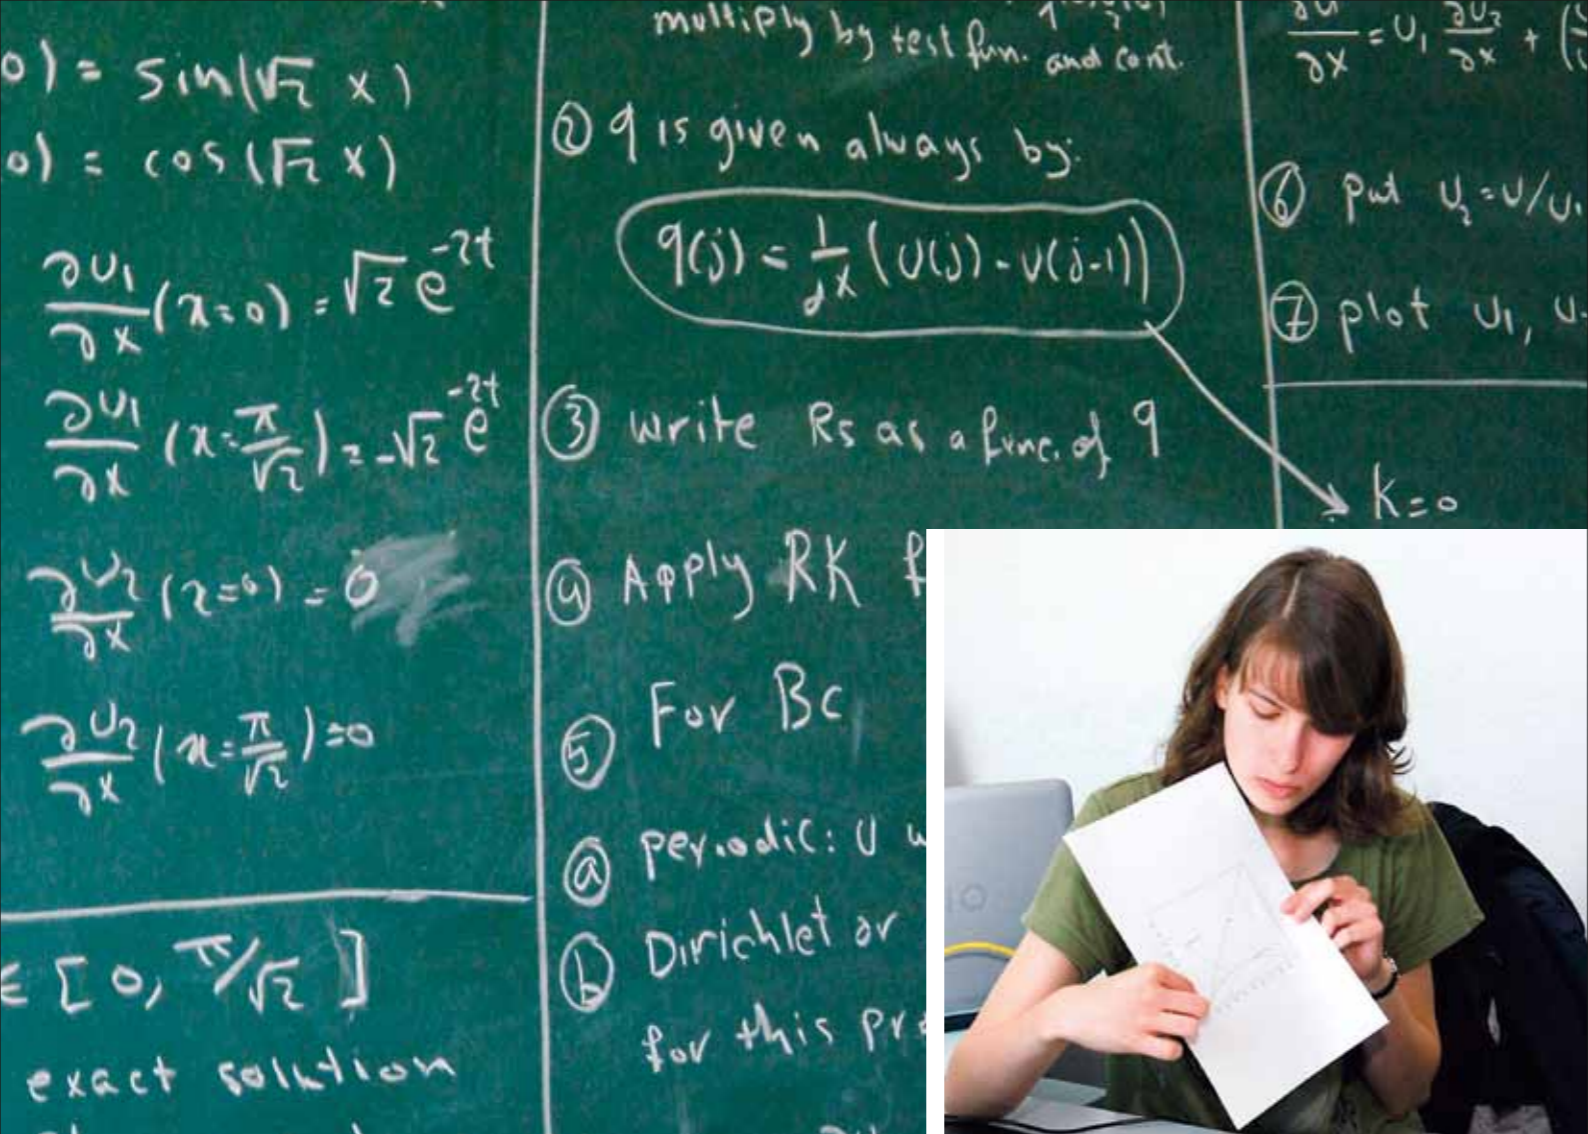 0) = sin(√2 x)
0) = cos(√2 x)
∂U1/∂x (x=0) = √2 e^-2t
∂U1/∂x (x=π/√2) = -√2 e^-2t
∂U2/∂x (x=0) = 0
∂U2/∂x (x=π/√2)=0
∈ [0, π/√2]
exact solution
multiply by test fun. and cont.
② q is given always by:
q(j) = 1/dx (U(j) - U(j-1))
③ write Rs as a func. of q
④ Apply RK f
⑤ For BC
ⓐ periodic: U
ⓑ Dirichlet or
for this pr
∂U/∂x = U1 ∂U2/∂x + (
⑥ put U2=U/U1
⑦ plot U1, U
k=0